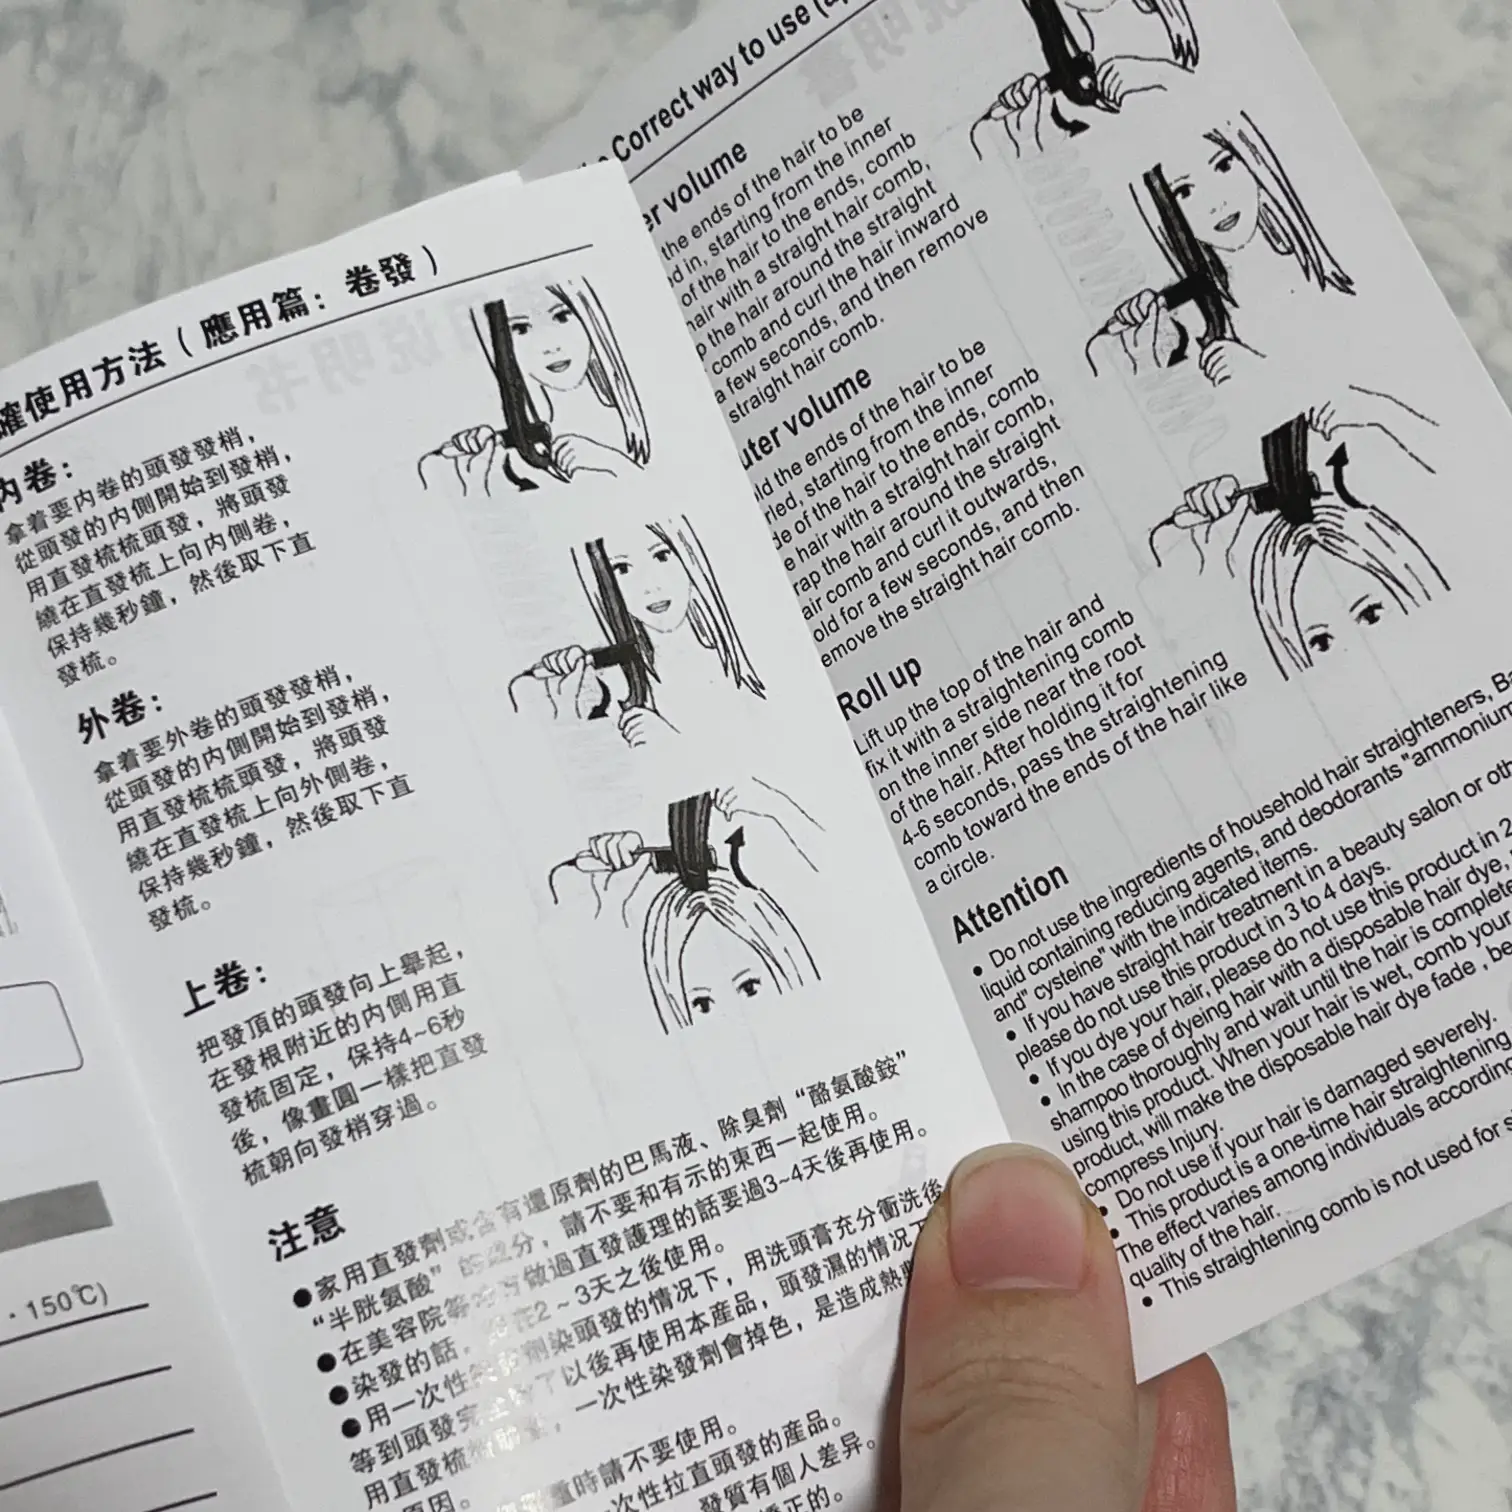 確使用方法（應用篇：卷發）
內卷：
拿着要內卷的頭發發梢，
從頭發的內側開始到發梢，
用直發梳梳頭發，將頭發
繞在直發梳上向內側卷，
保持幾秒鐘，然後取下直
發梳。
外卷：
拿着要外卷的頭發發梢，
從頭發的內側開始到發梢，
用直發梳梳頭發，將頭發
繞在直發梳上向外側卷，
保持幾秒鐘，然後取下直
發梳。
上卷：
把發頂的頭發向上舉起，
在發根附近的內側用直
發梳固定，保持4~6秒
後，像畫圓一樣把直發
梳朝向發梢穿過。
注意
●家用直發劑或含有還原劑的巴馬液、除臭劑“酪氨酸銨”
“半胱氨酸”的成分，請不要和有示的東西一起使用。
●在美容院等 做過直發護理的話要過3~4天後再使用。
●染發的話， 在2～3天之後使用。
●用一次性 劑染頭發的情况下，用洗頭膏充分衝洗後
等到頭發完 了以後再使用本産品，頭發濕的情况下
用直發梳 ，一次性染發劑會掉色，是造成熱
原因。
時請不要使用。
次性拉直頭發的産品。
發質有個人差异。
矯正的。
· 150℃)
Correct way to use
volume
the ends of the hair to be
in, starting from the inner
of the hair to the ends, comb
hair with a straight hair comb,
the hair around the straight
comb and curl the hair inward
a few seconds, and then remove
straight hair comb.
volume
the ends of the hair to be
starting from the inner
of the hair to the ends, comb
hair with a straight hair comb,
the hair around the straight
comb and curl it outwards,
for a few seconds, and then
the straight hair comb.
Roll up
Lift up the top of the hair and
fix it with a straightening comb
on the inner side near the root
of the hair. After holding it for
4-6 seconds, pass the straightening
comb toward the ends of the hair like
a circle.
Attention
● Do not use the ingredients of household hair straighteners,
liquid containing reducing agents, and deodorants "ammonium
and" cysteine" with the indicated items.
● If you have straight hair treatment in a beauty salon or
please do not use this product in 3 to 4 days.
● If you dye your hair, please do not use this product in
● In the case of dyeing hair with a disposable hair dye,
shampoo thoroughly and wait until the hair is
using this product. When your hair is wet, comb your
product, will make the disposable hair dye fade ,
compress Injury.
● Do not use if your hair is damaged severely.
● This product is a one-time hair straightening
The effect varies among individuals according
quality of the hair.
● This straightening comb is not used for